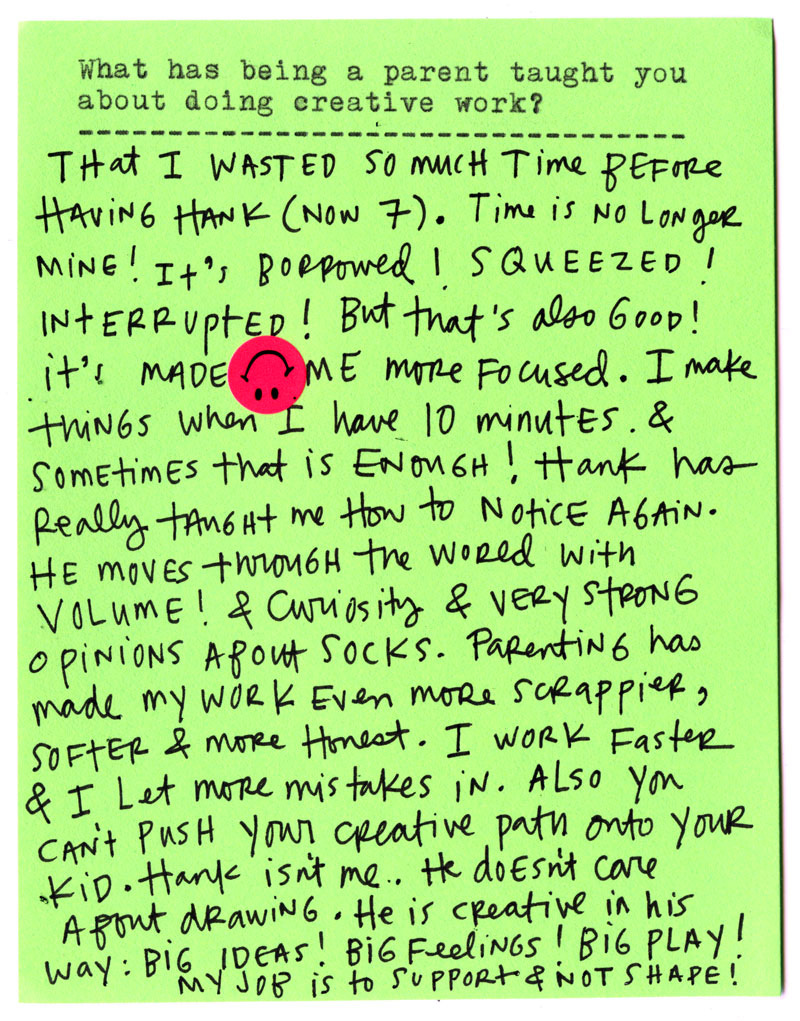 What has being a parent taught you
about doing creative work?
THAT I WASTED SO MUCH TIME BEFORE
HAVING HANK (NOW 7). Time is NO LONGER
MINE! It's BORROWED! SQUEEZED!
INTERRUPTED! But that's also GOOD!
it's MADE ME more FOCUSED. I make
things when I have 10 minutes. &
SOMETIMES that is ENOUGH! Hank has
Really taught me How to NOTICE AGAIN.
HE MOVES THROUGH the WORLD with
VOLUME! & Curiosity & VERY STRONG
OPINIONS ABOUT SOCKS. Parenting has
made my WORK Even more scrappier,
SOFTER & more Honest. I WORK Faster
& I Let more mistakes in. ALSO you
CAN'T PUSH YOUR creative path onto YOUR
KID. Hank isn't me.. He doesn't care
About drawing. He is creative in his
way: BIG IDEAS! BIG Feelings! BIG PLAY!
MY JOB is to SUPPORT & NOT SHAPE!